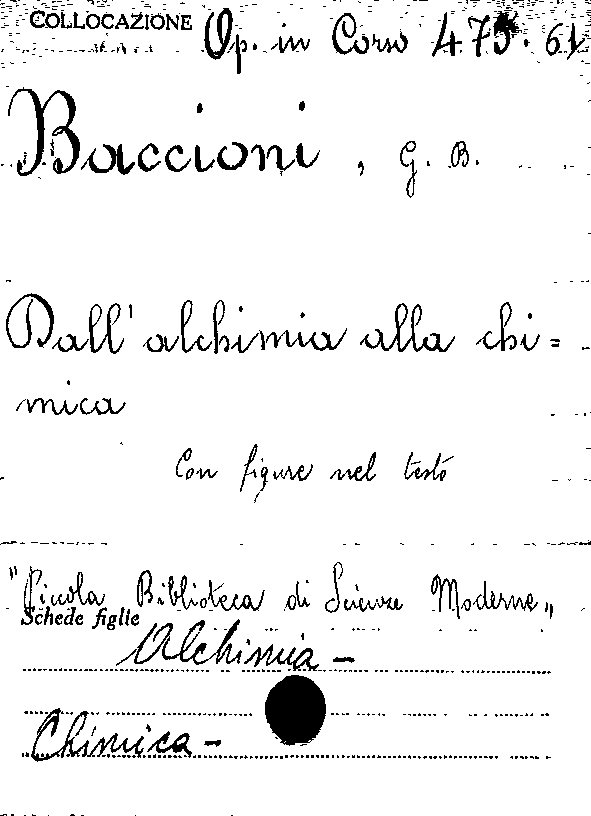 COLLOCAZIONE Op. in Corso 475.61
Baccioni, G. B.
Dall'alchimia alla chi=
mica
Con figure nel testo
"Piccola Biblioteca di Scienze Moderne„
Schede figlie
Alchimia -
Chimica -